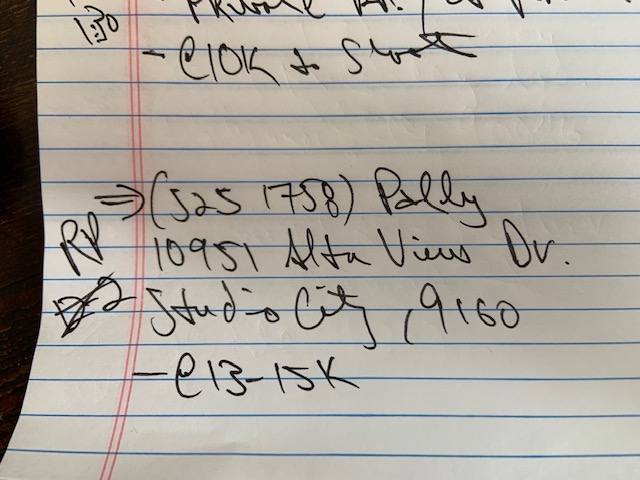 1:30
- @10K to Start
⇒ (525 1758) Polly
RP 10951 Alta View Dr.
Studio City, 9160
- @13-15K